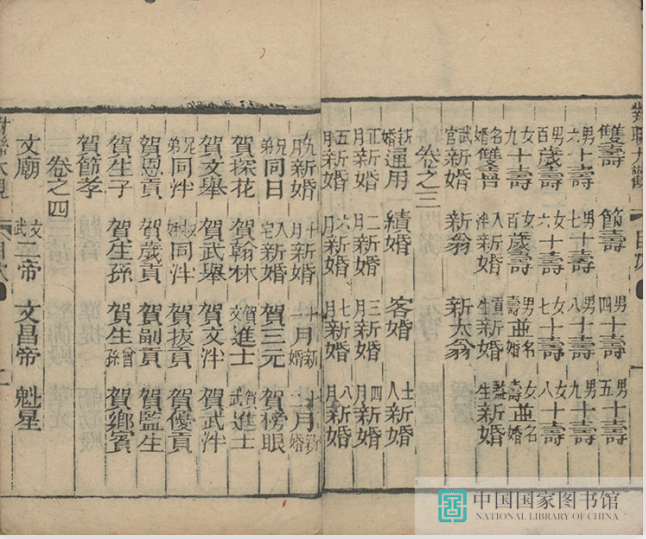 對聯大觀 目次 一
雙壽 節壽 男四十壽 男五十壽
男六十壽 男七十壽 男八十壽 男九十壽
男百歲壽 女六十壽 女七十壽 女八十壽
女九十壽 女百歲壽 男名並壽 女名並
名婚雙喜 入泮新婚 貢生新婚 監生新婚
武官新婚 新翁 新太翁
卷之三
新婚通用 續婚 客婚 士人新婚
正月新婚 二月新婚 三月新婚 四月新婚
五月新婚 六月新婚 七月新婚 八月新婚
九月新婚 十月新婚 十一月新婚 十二月新婚
同日新婚 入宅新婚 賀三元 賀榜眼
賀探花 賀翰林 賀文進士 賀武進士
賀文舉 賀武舉 賀文泮 賀武泮
兄弟同泮 同泮 賀拔貢 賀優貢
賀恩貢 賀歲貢 賀副貢 賀監生
賀生子 賀生孫 賀生曾孫 賀鄉賓
賀節孝
卷之四
文廟 文武二帝 文昌帝 魁星
對聯大觀 目次 一
中国国家图书馆
NATIONAL LIBRARY OF CHINA